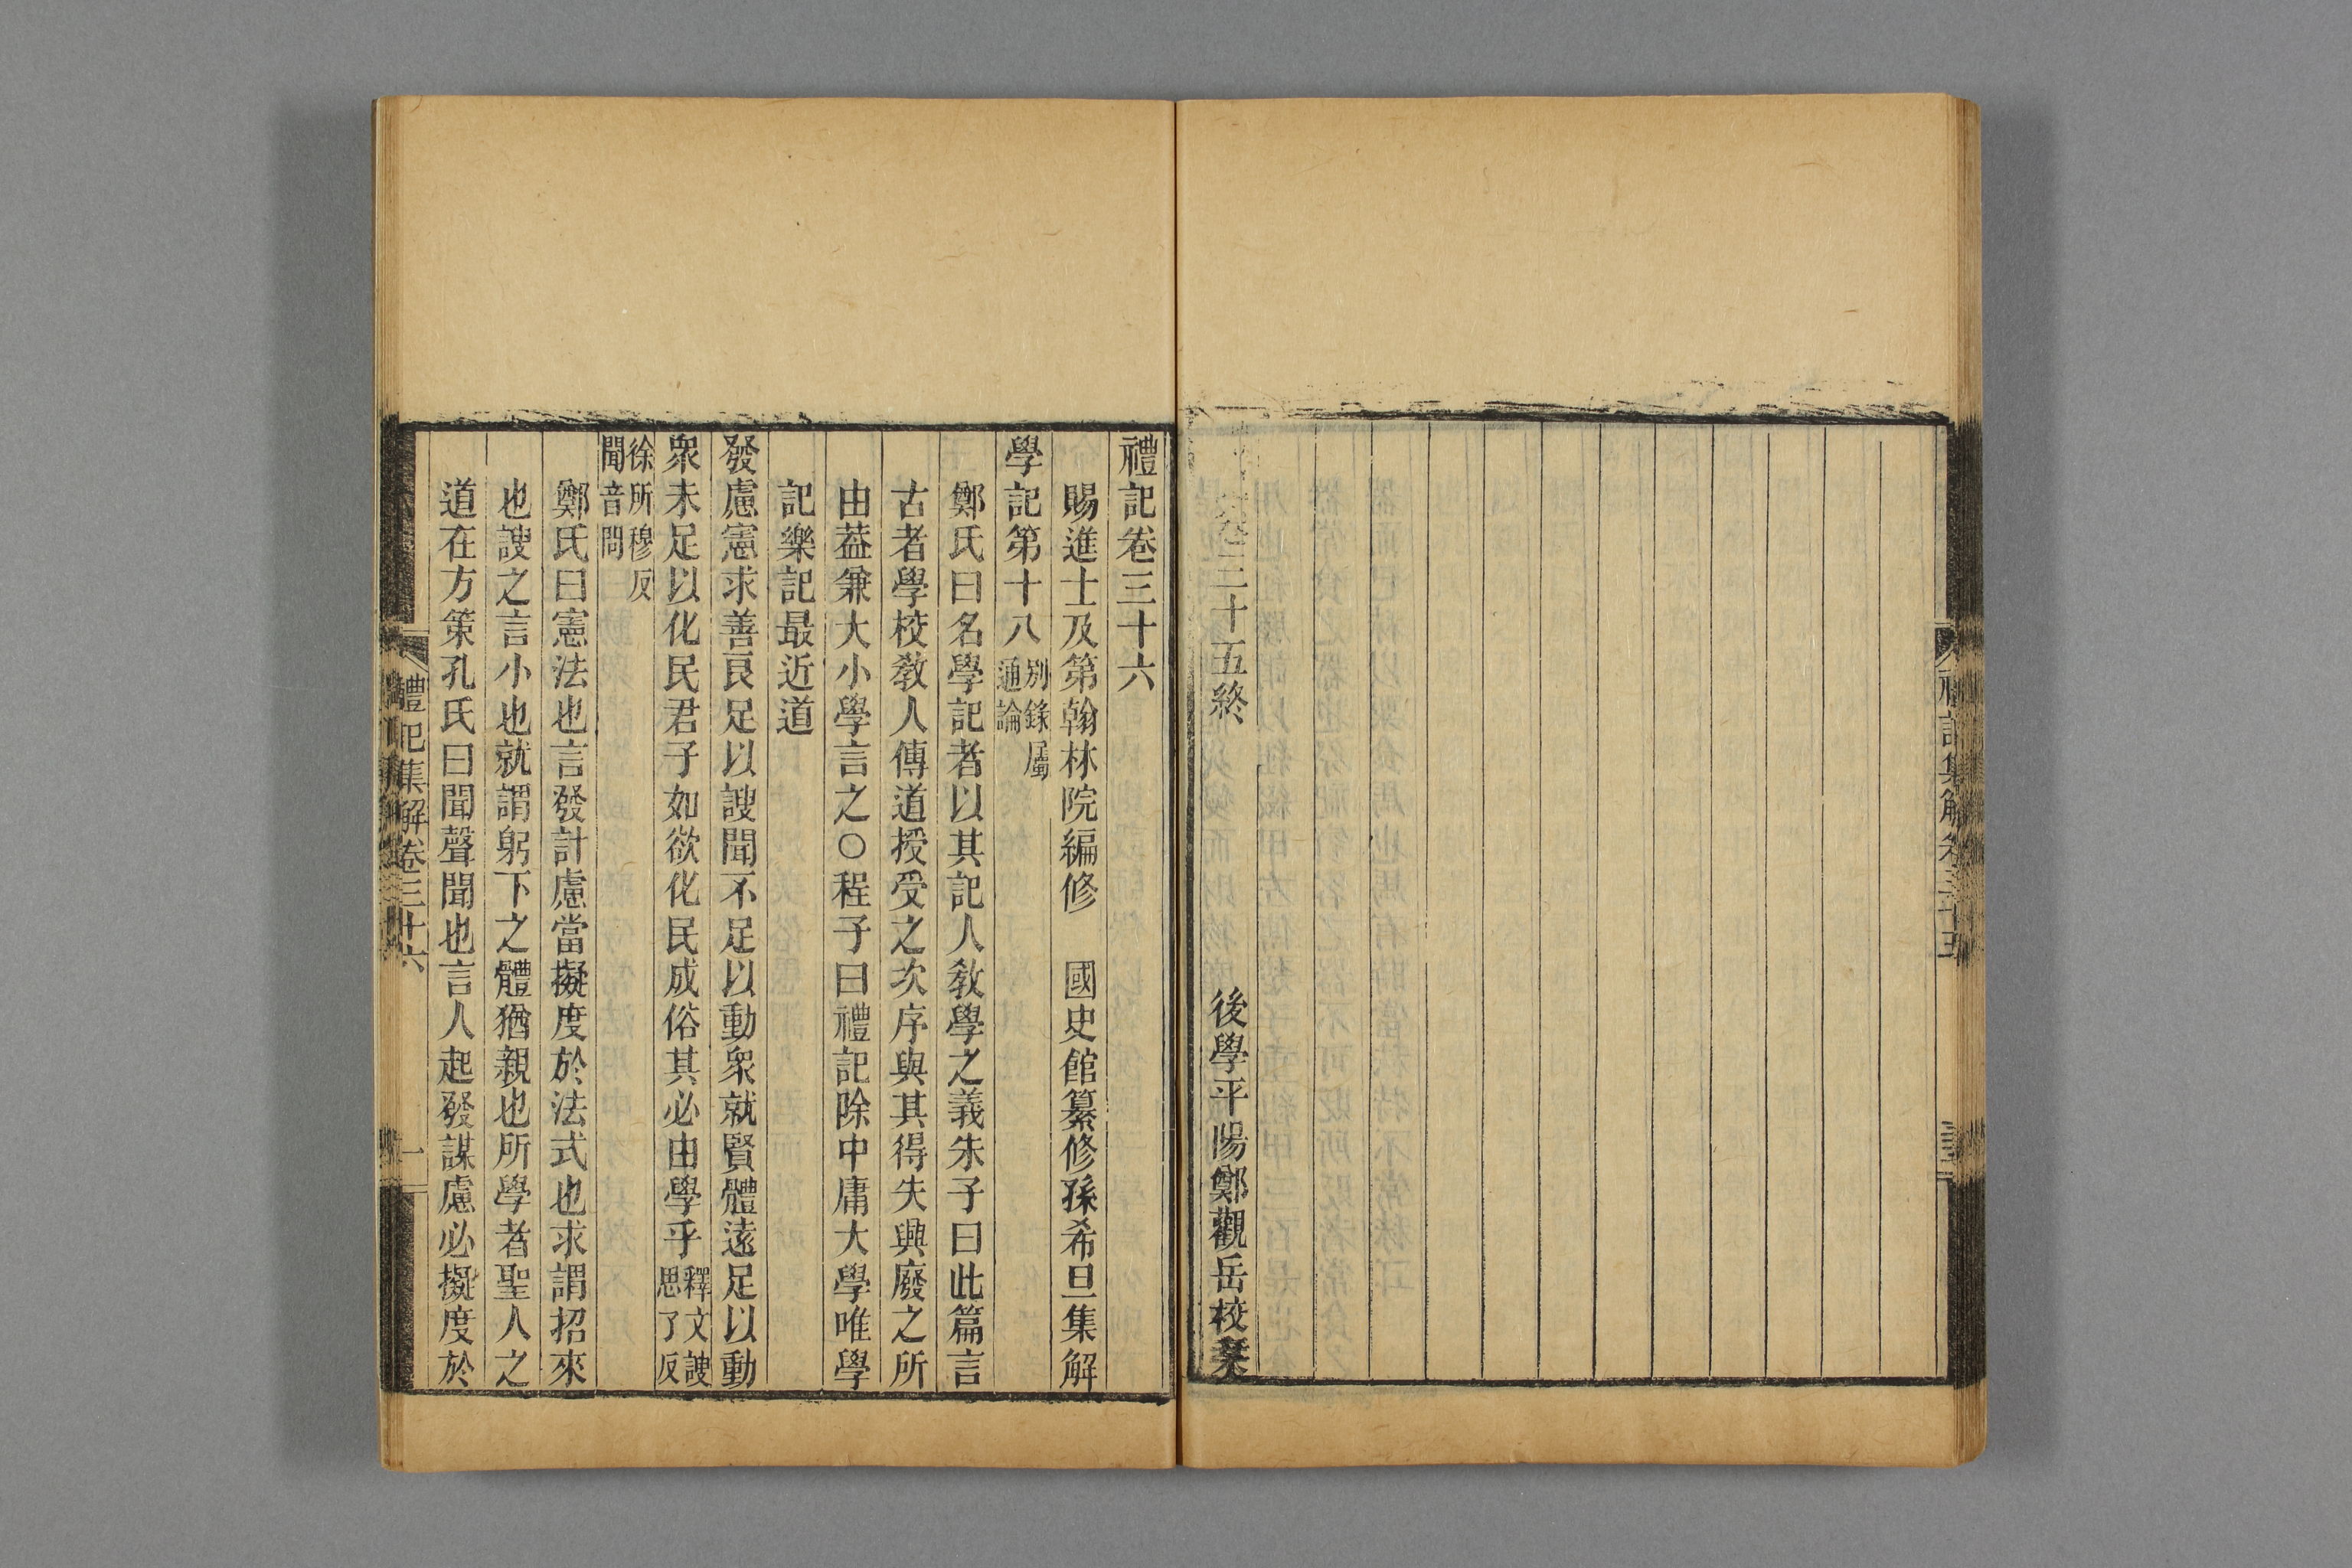 禮記集解卷三十五
卷三十五終 後學平陽鄭觀岳校栞
禮記卷三十六
賜進士及第翰林院編修 國史館纂修孫希旦集解
學記第十八 別錄屬通論
鄭氏曰名學記者以其記人敎學之義朱子曰此篇言
古者學校敎人傳道授受之次序與其得失興廢之所
由葢兼大小學言之○程子曰禮記除中庸大學唯學
記樂記最近道
發慮憲求善良足以謏聞不足以動衆就賢體遠足以動
衆未足以化民君子如欲化民成俗其必由學乎 釋文謏思了反
徐所穆反聞音問
鄭氏曰憲法也言發計慮當擬度於法式也求謂招來
也謏之言小也就謂躬下之體猶親也所學者聖人之
道在方策孔氏曰聞聲聞也言人起發謀慮必擬度於
禮記集解卷三十六 一